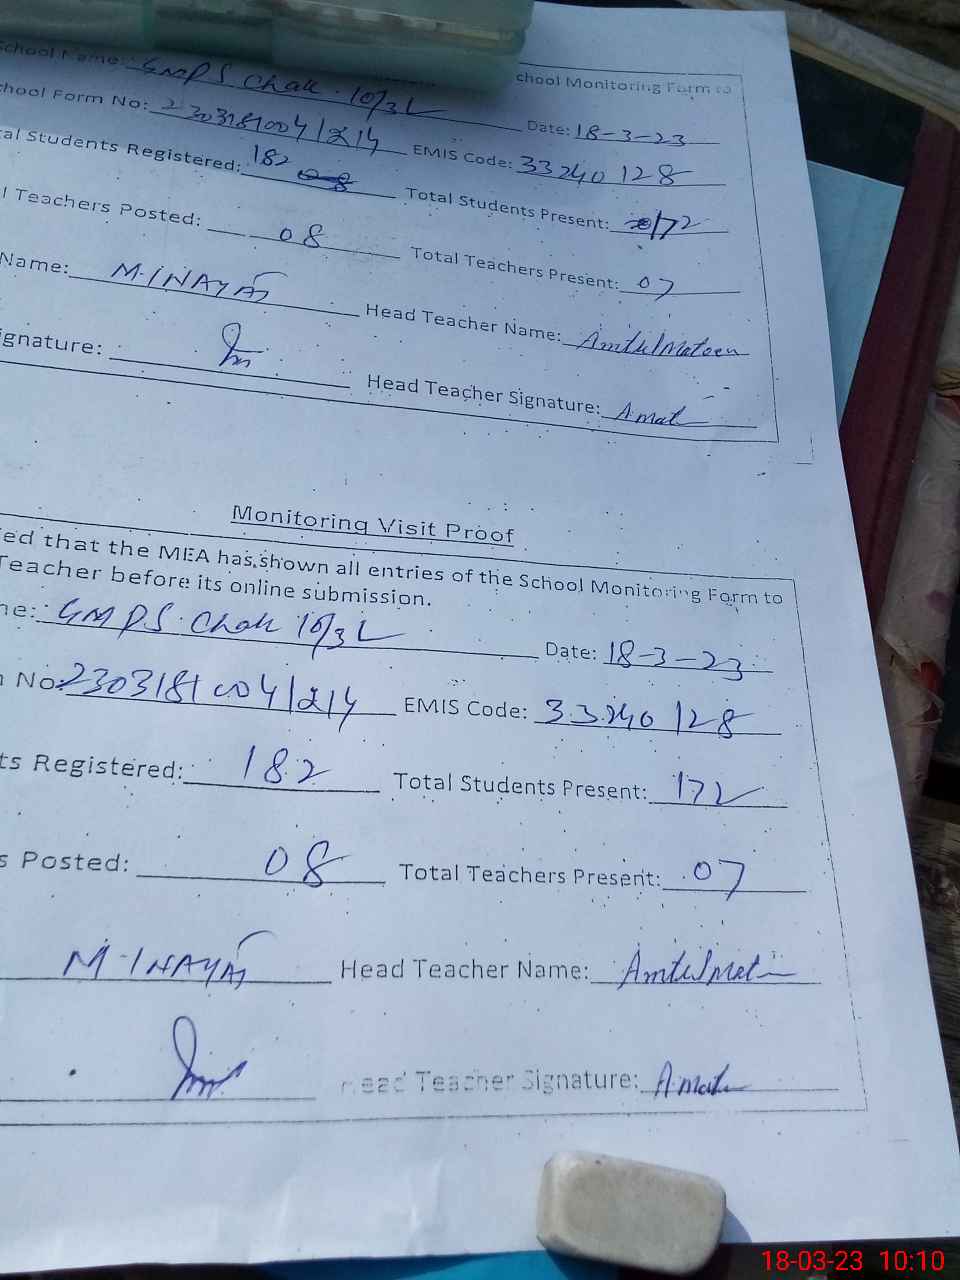 chool Monitoring Form to
School Name: GMPS Chak 10/3L Date: 18-3-23
chool Form No: 23031810041214 EMIS Code: 33240128
tal Students Registered: 182 Total Students Present: 172
l Teachers Posted: 08 Total Teachers Present: 07
Name: M.INAYAT Head Teacher Name: Amtul Mateen
ignature: Head Teacher Signature: Amat
Monitoring Visit Proof
ed that the MEA has shown all entries of the School Monitoring Form to
Teacher before its online submission.
me: GMPS Chak 10/3L Date: 18-3-23
n No: 23031810041214 EMIS Code: 33240128
ts Registered: 182 Total Students Present: 172
s Posted: 08 Total Teachers Present: 07
M.INAYAT Head Teacher Name: Amtul Mat
Head Teacher Signature: Amat
18-03-23 10:10